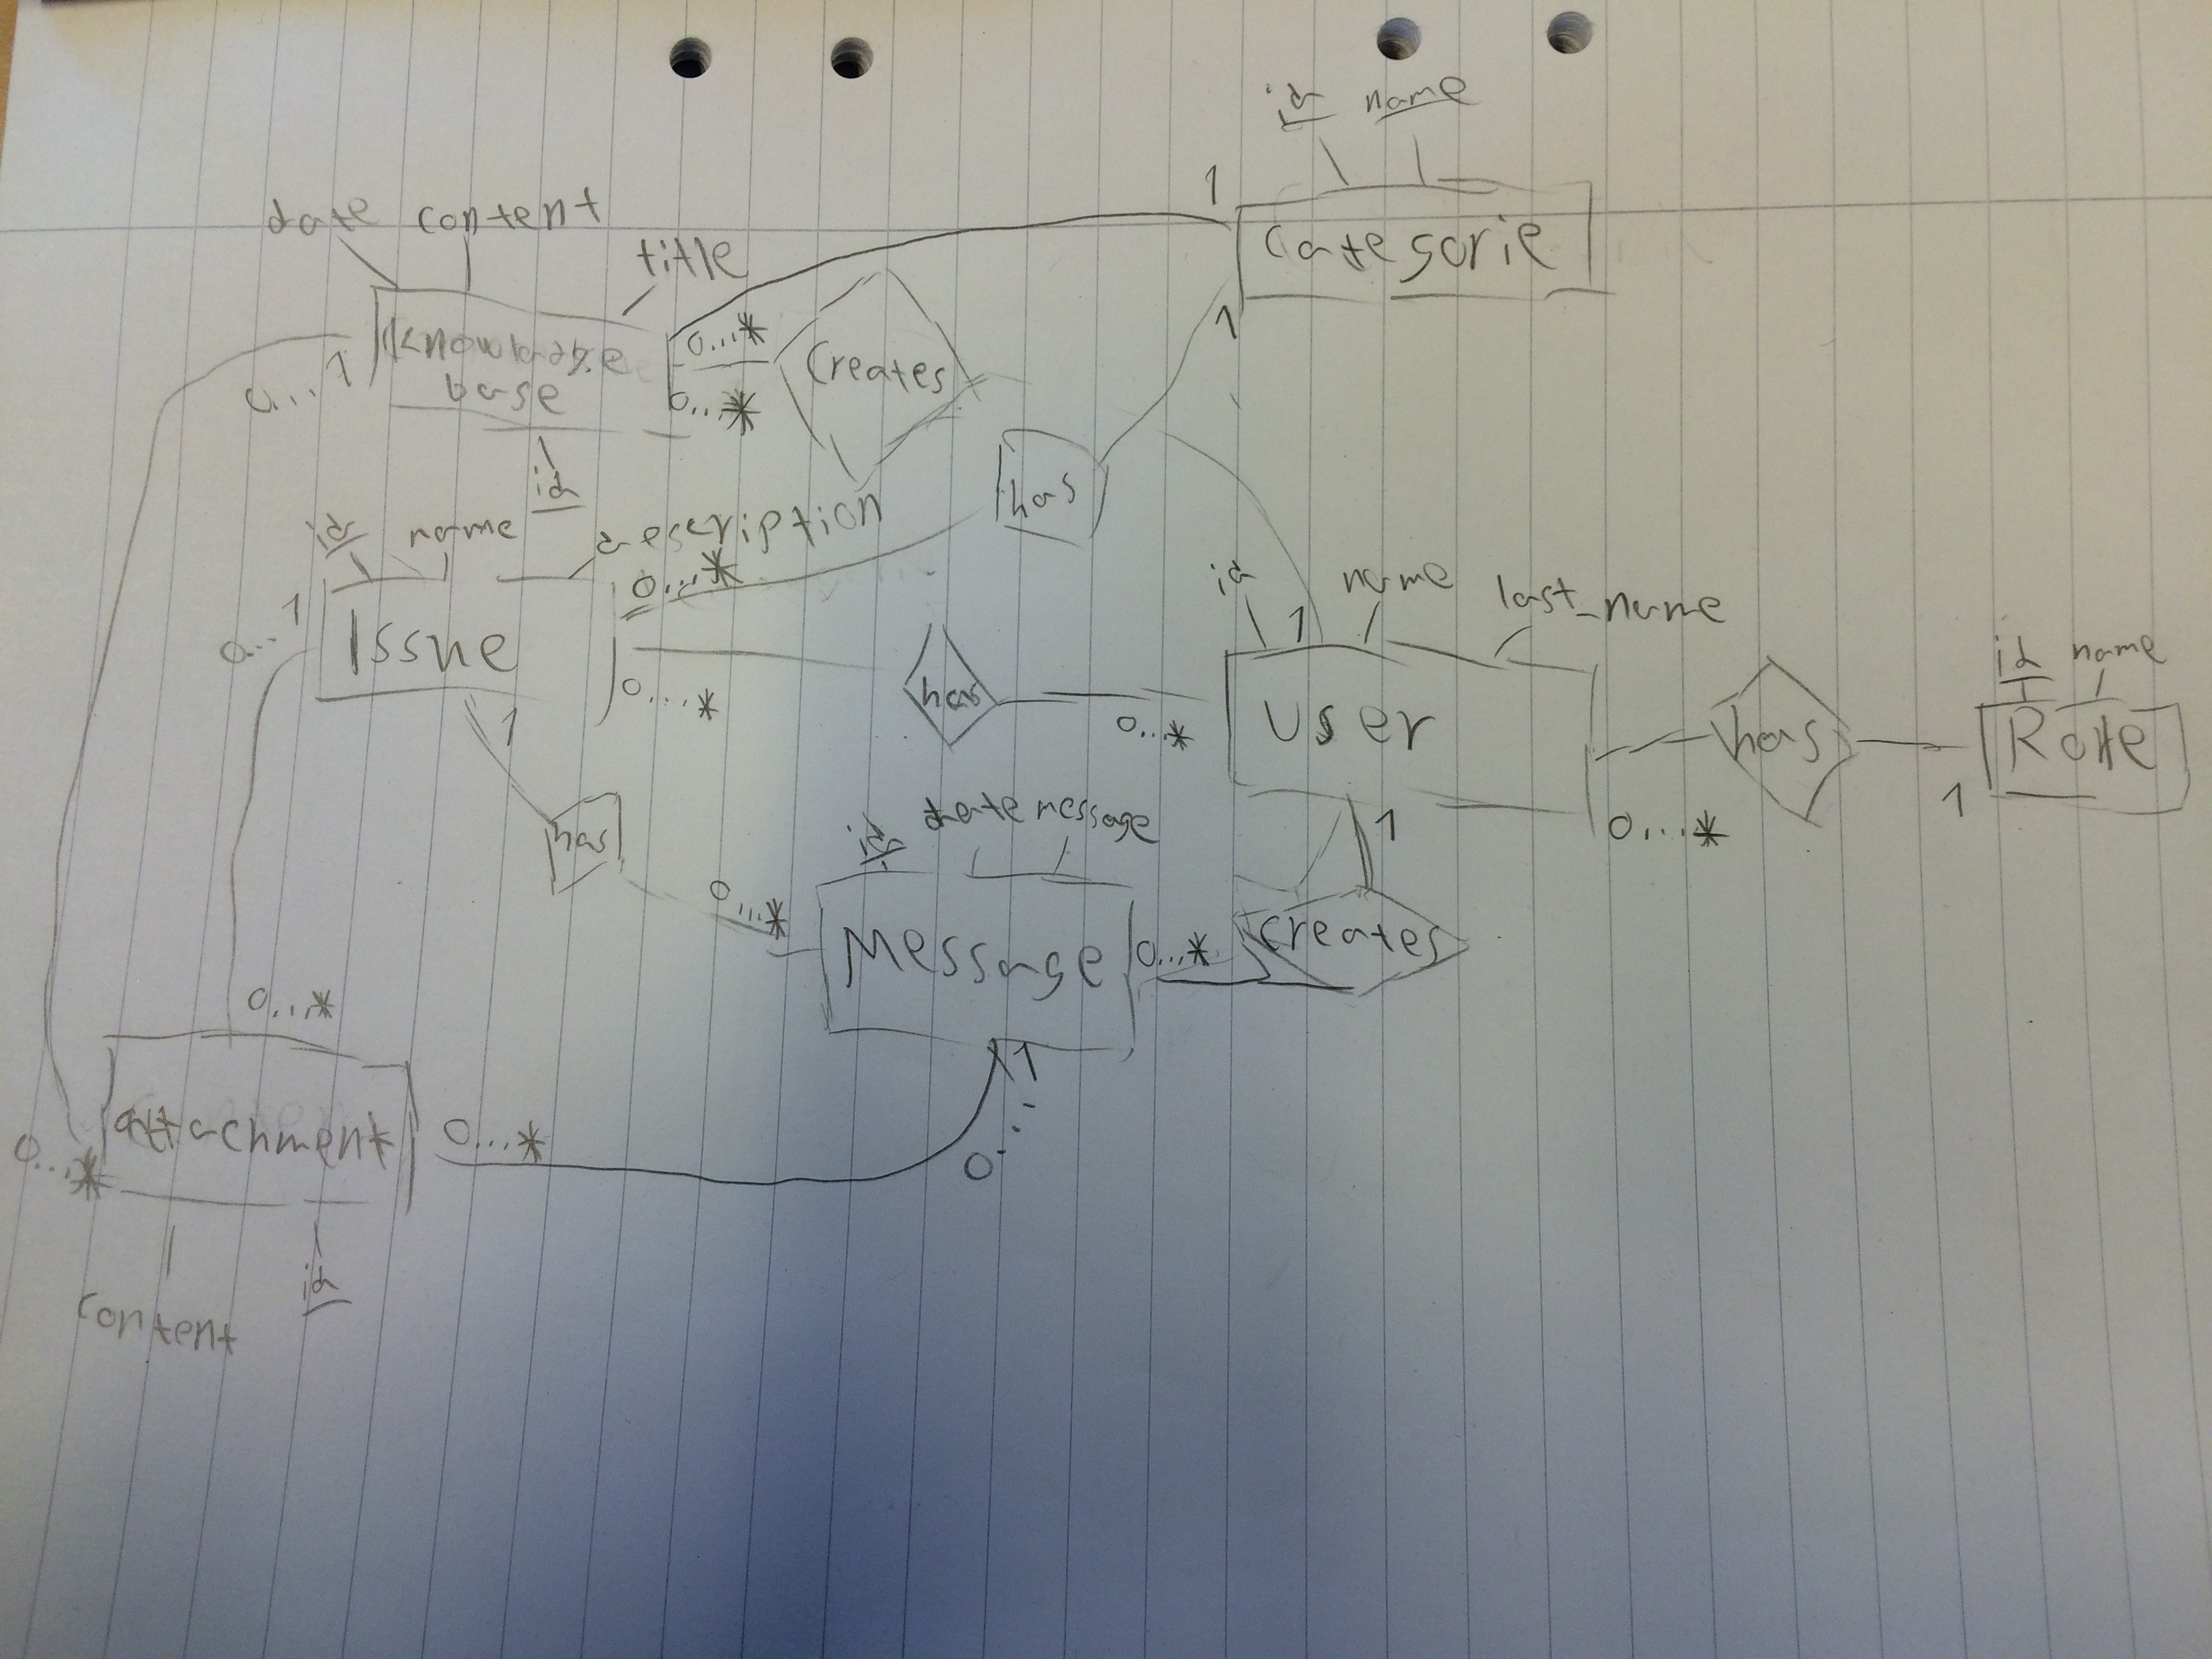 id name
1
Categorie
1
date content
title
Knowledge
base
0...*
0...*
0...1
Creates
id
has
id name description
0...*
0...1
1
Issue
0...*
has
0...*
id 1 name last_name
User
0...*
has
1
id name
Role
1
has
0...*
id date message
Message
0...*
1
creates
1
0...
0...*
attachment
0...*
0...*
content id